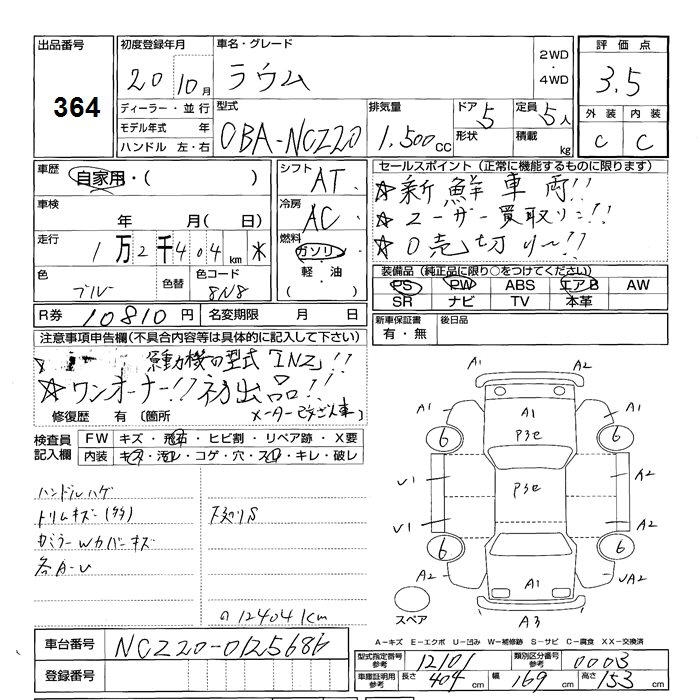 出品番号
364
初度登録年月
20 10月
車名・グレード
ラウム
2WD
・
4WD
評価点
3.5
外装 内装
C C
ディーラー・並行
モデル年式 年
ハンドル 左・右
型式
CBA-NCZ20
排気量
1,500 CC
ドア 5
形状
定員 5人
積載 kg
車歴
自家用・( )
シフト
AT
車検
年 月( 日)
冷房
AC
走行
1万2千404km
燃料
ガソリン
軽・油
( )
色
ブルー
色替
色コード
8N8
R券 10810円
名変期限 月 日
セールスポイント(正常に機能するものに限ります)
☆新鮮車両!!
☆ユーザー買取り!!
☆売切り~!!
装備品(純正品に限り○をつけてください)
PS PW ABS エアB AW
SR ナビ TV 本革
新車保証書
有・無
後日品
注意事項申告欄(不具合内容等は具体的に記入して下さい)
原動機の型式「1NZ」!!
☆ワンオーナー!!初出品!!
修復歴 有〔箇所
メーター改ざん車〕
検査員
記入欄
FW キズ・飛石・ヒビ割・リペア跡・X要
内装 キズ・汚れ・コゲ・穴・スレ・キレ・破レ
ハンドルハゲ
トリムキズ(多)
各A-U
下廻りS
12404km
車台番号 NCZ20-0125686
登録番号
A1 A2
A1 A1 A1
P3セ
6 6
U1 A2
P3セ
U1 A2
6 6
A2 A1 UA2
A3
スペア
A-キズ E-エクボ U-凹み W-補修跡 S-サビ C-腐食 XX-交換済
型式指定番号
参考
12101
類別区分番号
参考
0003
車庫証明用
参考
長さ 404cm
幅 169cm
高さ 153cm